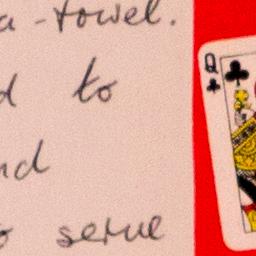 a - towel.
d to
nd
o serve
Q